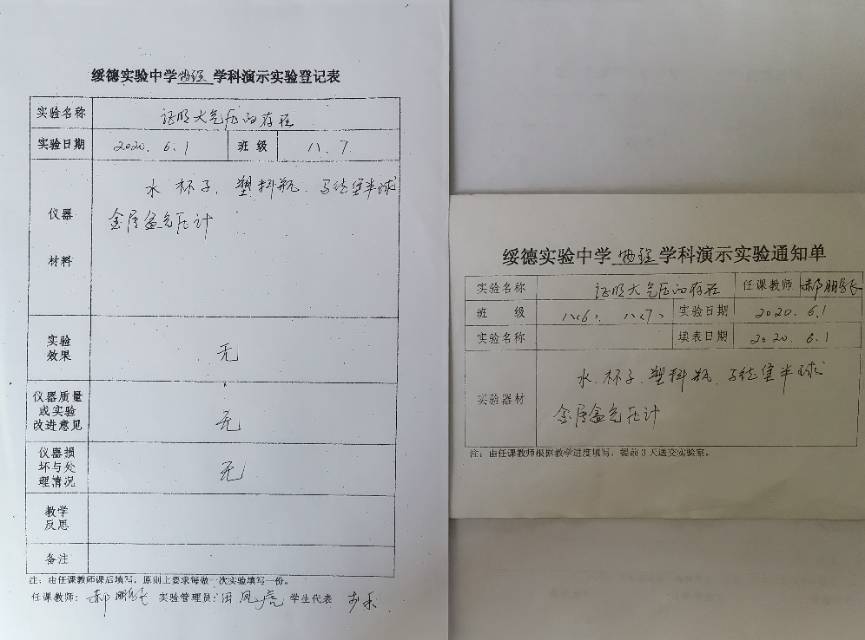 绥德实验中学物理学科演示实验登记表
实验名称 证明大气压的存在
实验日期 2020.6.1 班级 八.7
仪器 材料 水.杯子.塑料瓶.马德堡半球
金属盒气压计
实验效果 无
仪器质量或实验改进意见 无
仪器损坏与处理情况 无
教学反思
备注
注：由任课教师课后填写，原则上要求每做一次实验填写一份。
任课教师： 实验管理员： 学生代表
绥德实验中学物理学科演示实验通知单
实验名称 证明大气压的存在 任课教师
班级 八(6). 八(7). 实验日期 2020.6.1
实验名称 填表日期 2020.6.1
实验器材 水.杯子.塑料瓶.马德堡半球
金属盒气压计
注：由任课教师根据教学进度填写，提前3天送交实验室。